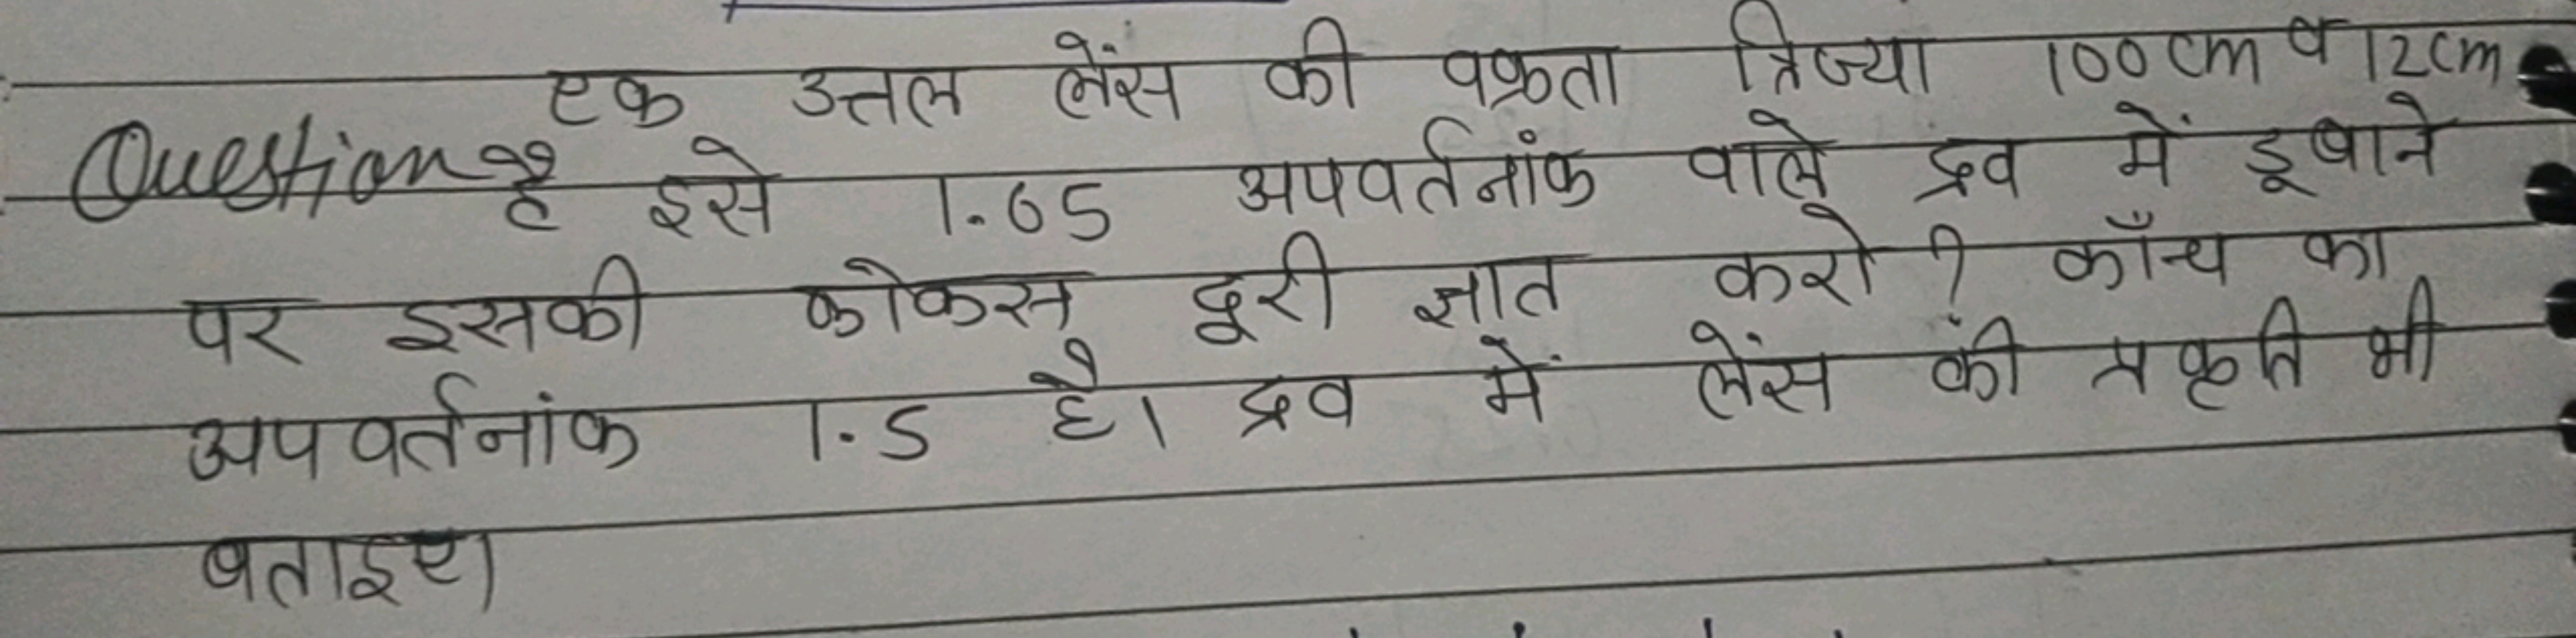 एक उत्तल लेंस की वक्रता त्रिज्या 100 cm व 12cm
Question है इसे 1.65 अपवर्तनांक वाले द्रव में डूबाने
पर इसकी फोकस दूरी ज्ञात करो ? काँच का
अपवर्तनांक 1.5 है। द्रव में लेंस की प्रकृति भी
बताइए।